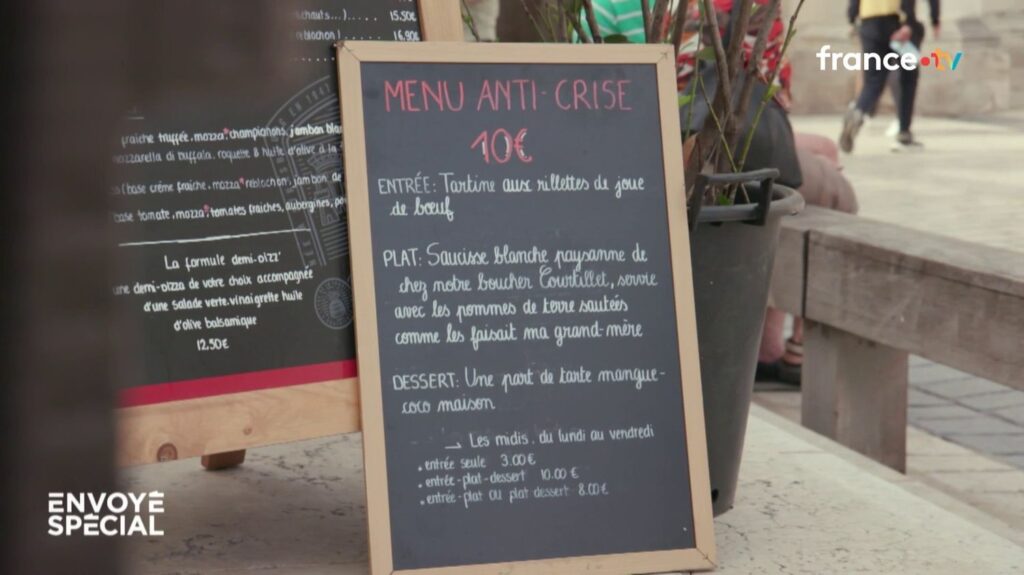 chauts...)..... 15,50€
reblochon)..... 16,90€
fraiche truffée, mozza, champignons, jambon blanc
mozzarella di buffala, roquette & huile d'olive à la
(base crème fraiche, mozza, reblochon, jambon de
base tomate, mozza, tomates fraiches, aubergines,
La formule demi-pizz'
une demi-pizza de votre choix accompagnée
d'une salade verte, vinaigrette huile
d'olive balsamique
12,50€
MENU ANTI-CRISE
10€
ENTRÉE: Tartine aux rillettes de joue
de bœuf
PLAT: Saucisse blanche paysanne de
chez notre boucher Courtillet, servie
avec les pommes de terre sautés
comme les faisait ma grand-mère
DESSERT: Une part de tarte mangue-
coco maison
→ Les midis, du lundi au vendredi
• entrée seule 3.00€
• entrée-plat-dessert 10.00 €
• entrée-plat ou plat dessert 8.00€
france•tv
ENVOYÉ
SPÉCIAL